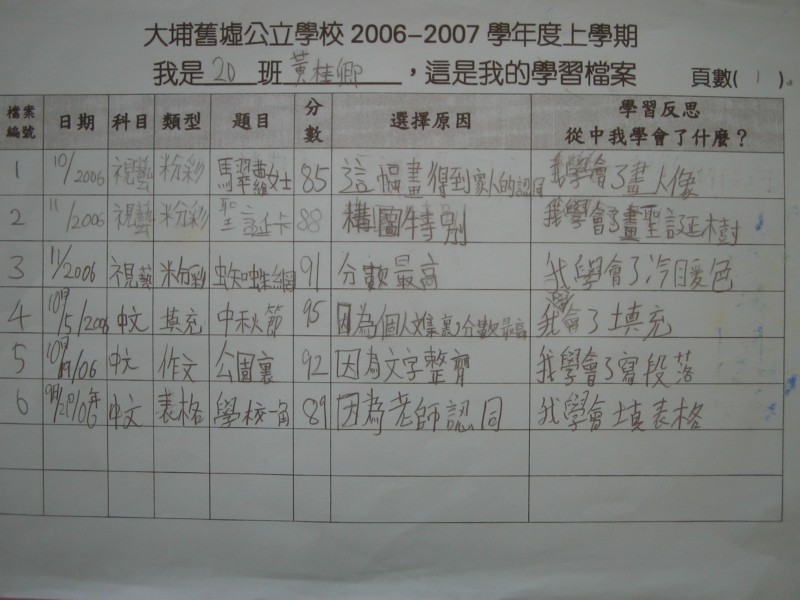 大埔舊墟公立學校 2006-2007 學年度上學期
我是 20 班 黃桂卿 ,這是我的學習檔案 頁數( 1 )
檔案編號 日期 科目 類型 題目 分數 選擇原因 學習反思 從中我學會了什麼?
1 10/2006 視藝 粉彩 馬翠蘿女士 85 這幅畫得到家人的認同 我學會了畫人像
2 11/2006 視藝 粉彩 聖誕卡 88 構圖特別 我學會了畫聖誕樹
3 11/2006 視藝 粉彩 蜘蛛網 91 分數最高 我學會了冷暖色
4 10月/5/2006 中文 填充 中秋節 95 因為個人文集裏分數最高 我學會了填充
5 10月/19/06 中文 作文 公園裏 92 因為文字整齊 我學會了寫段落
6 中文 表格 學校一角 89 因為老師認同 我學會填表格